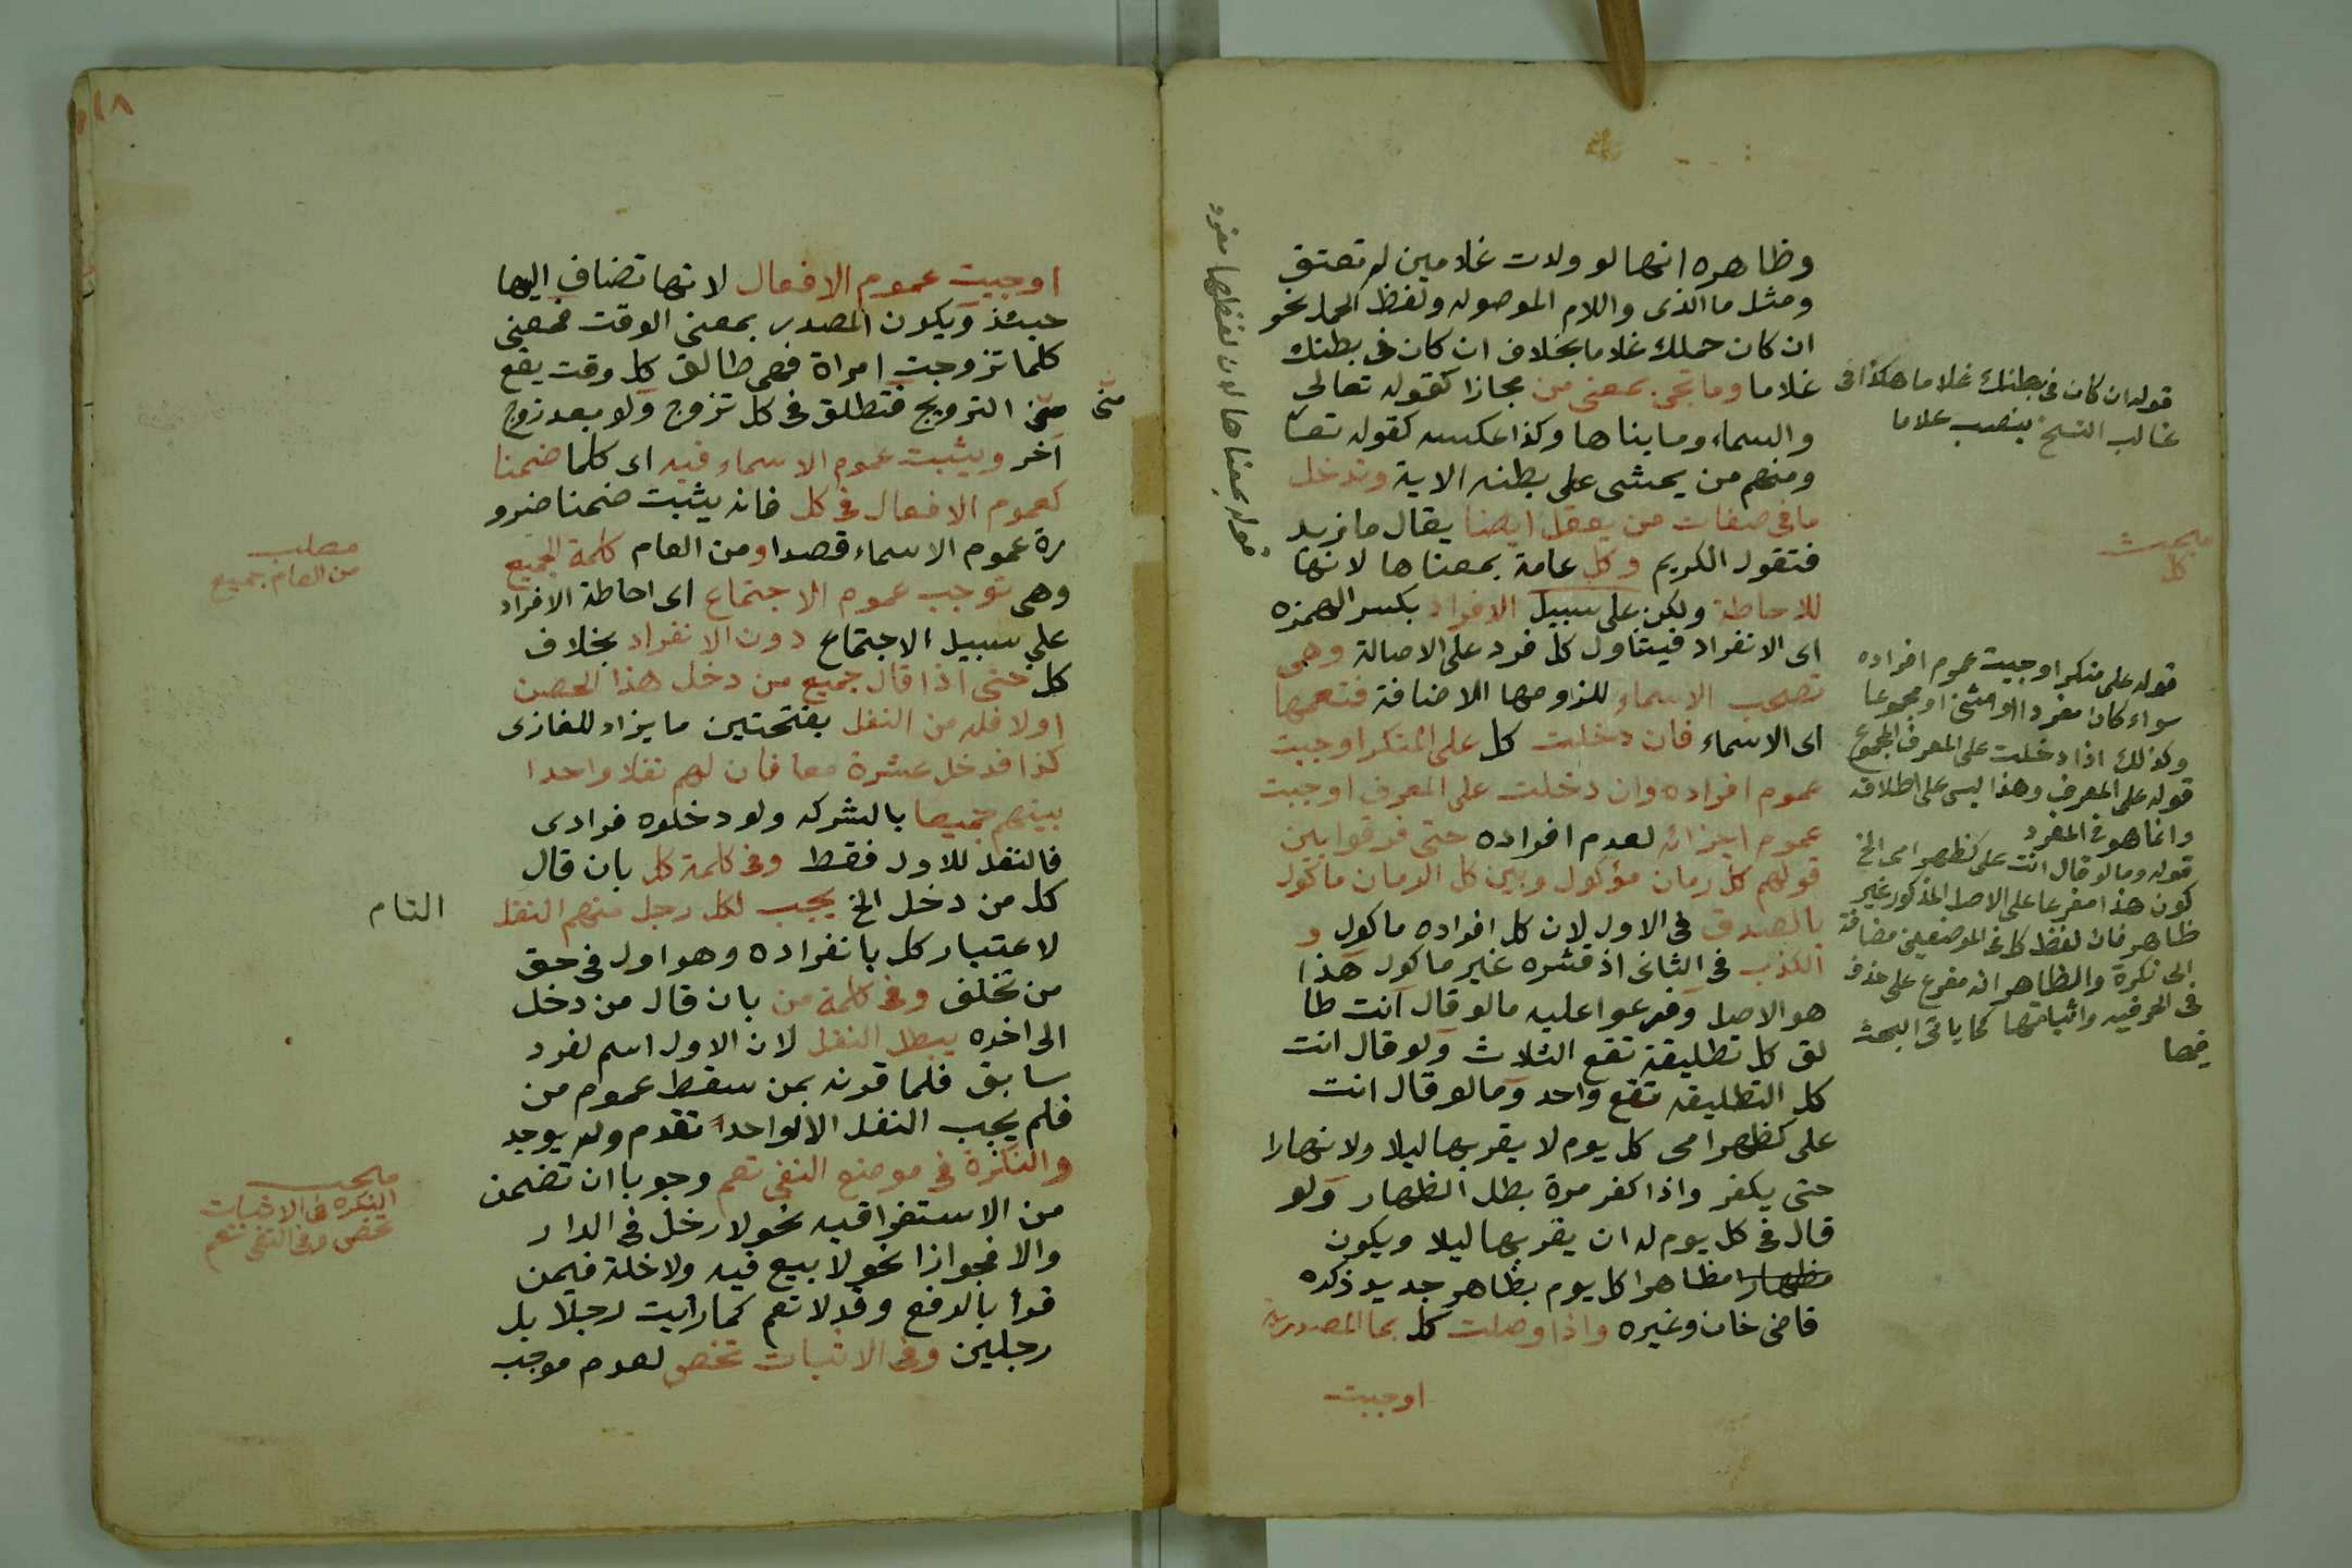 وظاهره انها لو ولدت غلامين لم تعتق
ومثل ما الذى واللام الموصوله ولفظ الحمل نحو
ان كان حملك غلاما بخلاف ان كان فى بطنك
غلاما وما تجئ بمعنى من مجازا كقوله تعالى
والسماء وما بناها وكذا عكسه كقوله تعا
ومنهم من يمشى على بطنه الاية وتدخل
ما فى صفات من يعقل ايضا يقال ما زيد
فتقول الكريم وكل عامة بمعناها لانها
للاحاطة ولكن على سبيل الافراد بكسر الهمزه
اى الانفراد فيتناول كل فرد على الاصالة وهى
تصحب الاسماء للزومها الاضافة فتعمها
اى الاسماء فان دخلت كل على المنكر اوجبت
عموم افراده وان دخلت على المعرف اوجبت
عموم اجزائه لعدم افراده حتى فرقوا بين
قولهم كل رمان مؤكول وبين كل الرمان ماكول
بالصدق فى الاول لان كل افراده ماكول و
الكذب فى الثانى اذ قشره غير ماكول هذا
هو الاصل وفرعوا عليه ما لو قال انت طا
لق كل تطليقة تقع الثلاث ولو قال انت
كل التطليقه تقع واحد وما لو قال انت
على كظهر امى كل يوم لا يقربها ليلا ولا نهارا
حتى يكفر واذا كفر مرة بطل الظهار ولو
قال فى كل يوم له ان يقربها ليلا ويكون
مظهارا مظاهرا كل يوم بظاهر جديد ذكره
قاضى خان وغيره واذا وصلت كل بما المصدرية
اوجبت
قوله ان كان فى بطنك غلاما هكذا فى
غالب النسخ بنصب غلاما
مبحث
كل
قوله على منكر اوجبت عموم افراده
سواء كان مفردا او مثنى او مجموعا
وكذلك اذا دخلت على المعرف المجموع
قوله على المعرف وهذا ليس على اطلاقه
وانما هو فى المفرد
قوله وما لو قال انت على كظهر امى الخ
كون هذا مفرعا على الاصل المذكور غير
ظاهر فان لفظ كل فى الموضعين مضافة
الى نكرة والظاهر انه مفرع على حذف
فى الحرفيه واثباتها كما ياتى البحث
فيها
قوله بمعناها لان لفظها مفرد
اوجبت عموم الافعال لانها تضاف اليها
حينئذ ويكون المصدر بمعنى الوقت فمعنى
كلما تزوجت امراة فهى طالق كل وقت يقع
منى التزويج فتطلق فى كل تزوج ولو بعد زوج
منى
آخر ويثبت عموم الاسماء فيه اى كلما ضمنا
كعموم الافعال فى كل فانه يثبت ضمنا ضرو
رة عموم الاسماء قصدا ومن العام كلمة الجميع
وهى توجب عموم الاجتماع اى احاطة الافراد
على سبيل الاجتماع دون الانفراد بخلاف
كل حتى اذا قال جميع من دخل هذا الحصن
اولا فله من النفل بفتحتين ما يزاد للغازى
كذا فدخل عشرة معا فان لهم نفلا واحدا
بينهم جميعا بالشركه ولو دخلوه فرادى
فالنفل للاول فقط وفى كلمة كل بان قال
كل من دخل الخ يجب لكل رجل منهم النفل
التام
لاعتبار كل بانفراده وهو اول فى حق
من تخلف وفى كلمة من بان قال من دخل
الى اخره يبطل النفل لان الاول اسم لفرد
سابق فلما قرنه بمن سقط عموم من
فلم يجب النفل الا لواحد تقدم ولم يوجد
والنكرة فى موضع النفى تعم وجوبا ان تضمن
من الاستغراقيه نحو لا رجل فى الدار
والا فجوازا نحو لا بيع فيه ولا خلة فيمن
قرأ بالرفع وقد لا تعم كما رأيت رجلا بل
رجلين وفى الاثبات تخص لعدم موجب
مطلب
من العام جميع
مبحث
النكره فى الاثبات
تخص وفى النفى تعم